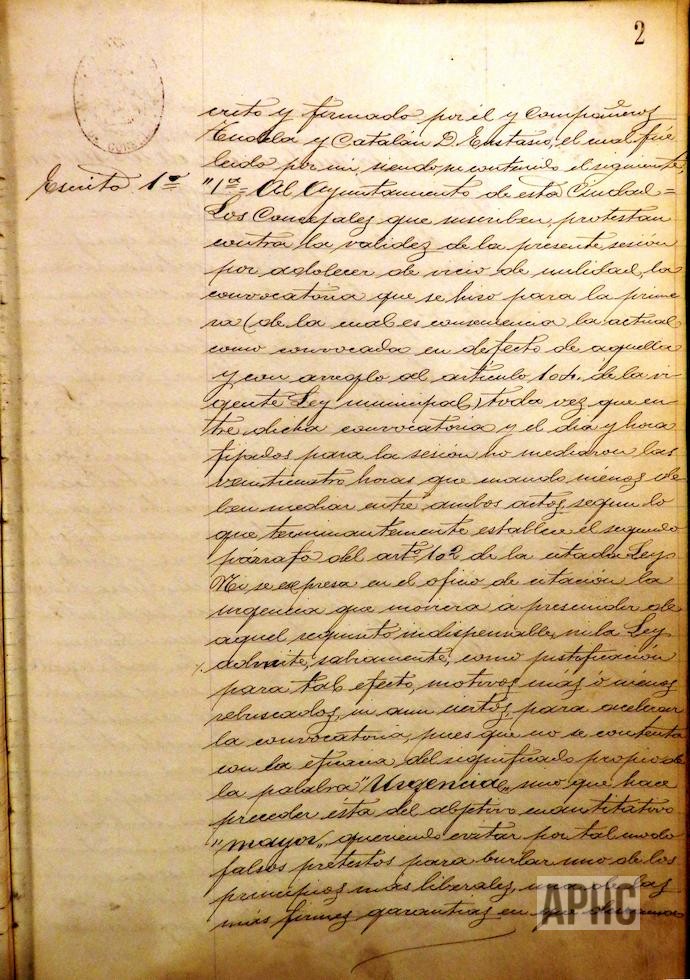 2
crito y firmado por él y Compañeros
Tudela y Catalán D. Eustasio, el cual fué
leido por mi, siendo su contenido el siguiente,
Escrito 1º = "1ª = Al Ayuntamiento de esta Ciudad =
Los Concejales que suscriben, protestan
contra la validez de la presente sesión
por adolecer de vicio de nulidad, la
convocatoria que se hiso para la prime
ra (de la cual es consecuencia la actual
como convocada en defecto de aquella
y con arreglo al artículo 104, de la vi
gente Ley municipal) toda vez que en
tre dicha convocatoria y el dia y hora
fijados para la sesión no mediaron las
veinticuatro horas que cuando ménos de
ben mediar entre ambos actos, segun lo
que terminantemente establece el segundo
párrafo del artº 102 de la citada Ley.
Ni se expresa en el oficio de citación la
urgencia que moviera á prescindir de
aquel requisito indispensable, ni la Ley
admite, sabiamente, como justificación
para tal efecto, motivos más ó menos
rebuscados, ni aun ciertos, para acelerar
la convocatoria, pues que no se contenta
con la eficacia del significado propio de
la palabra "Urgencia" sino que hace
preceder esta del adjetivo cuantitativo
"mayor", queriendo evitar por tal modo
falsos pretestos para burlar uno de los
principios más liberales, una de las
más firmes garantias en que
APHC